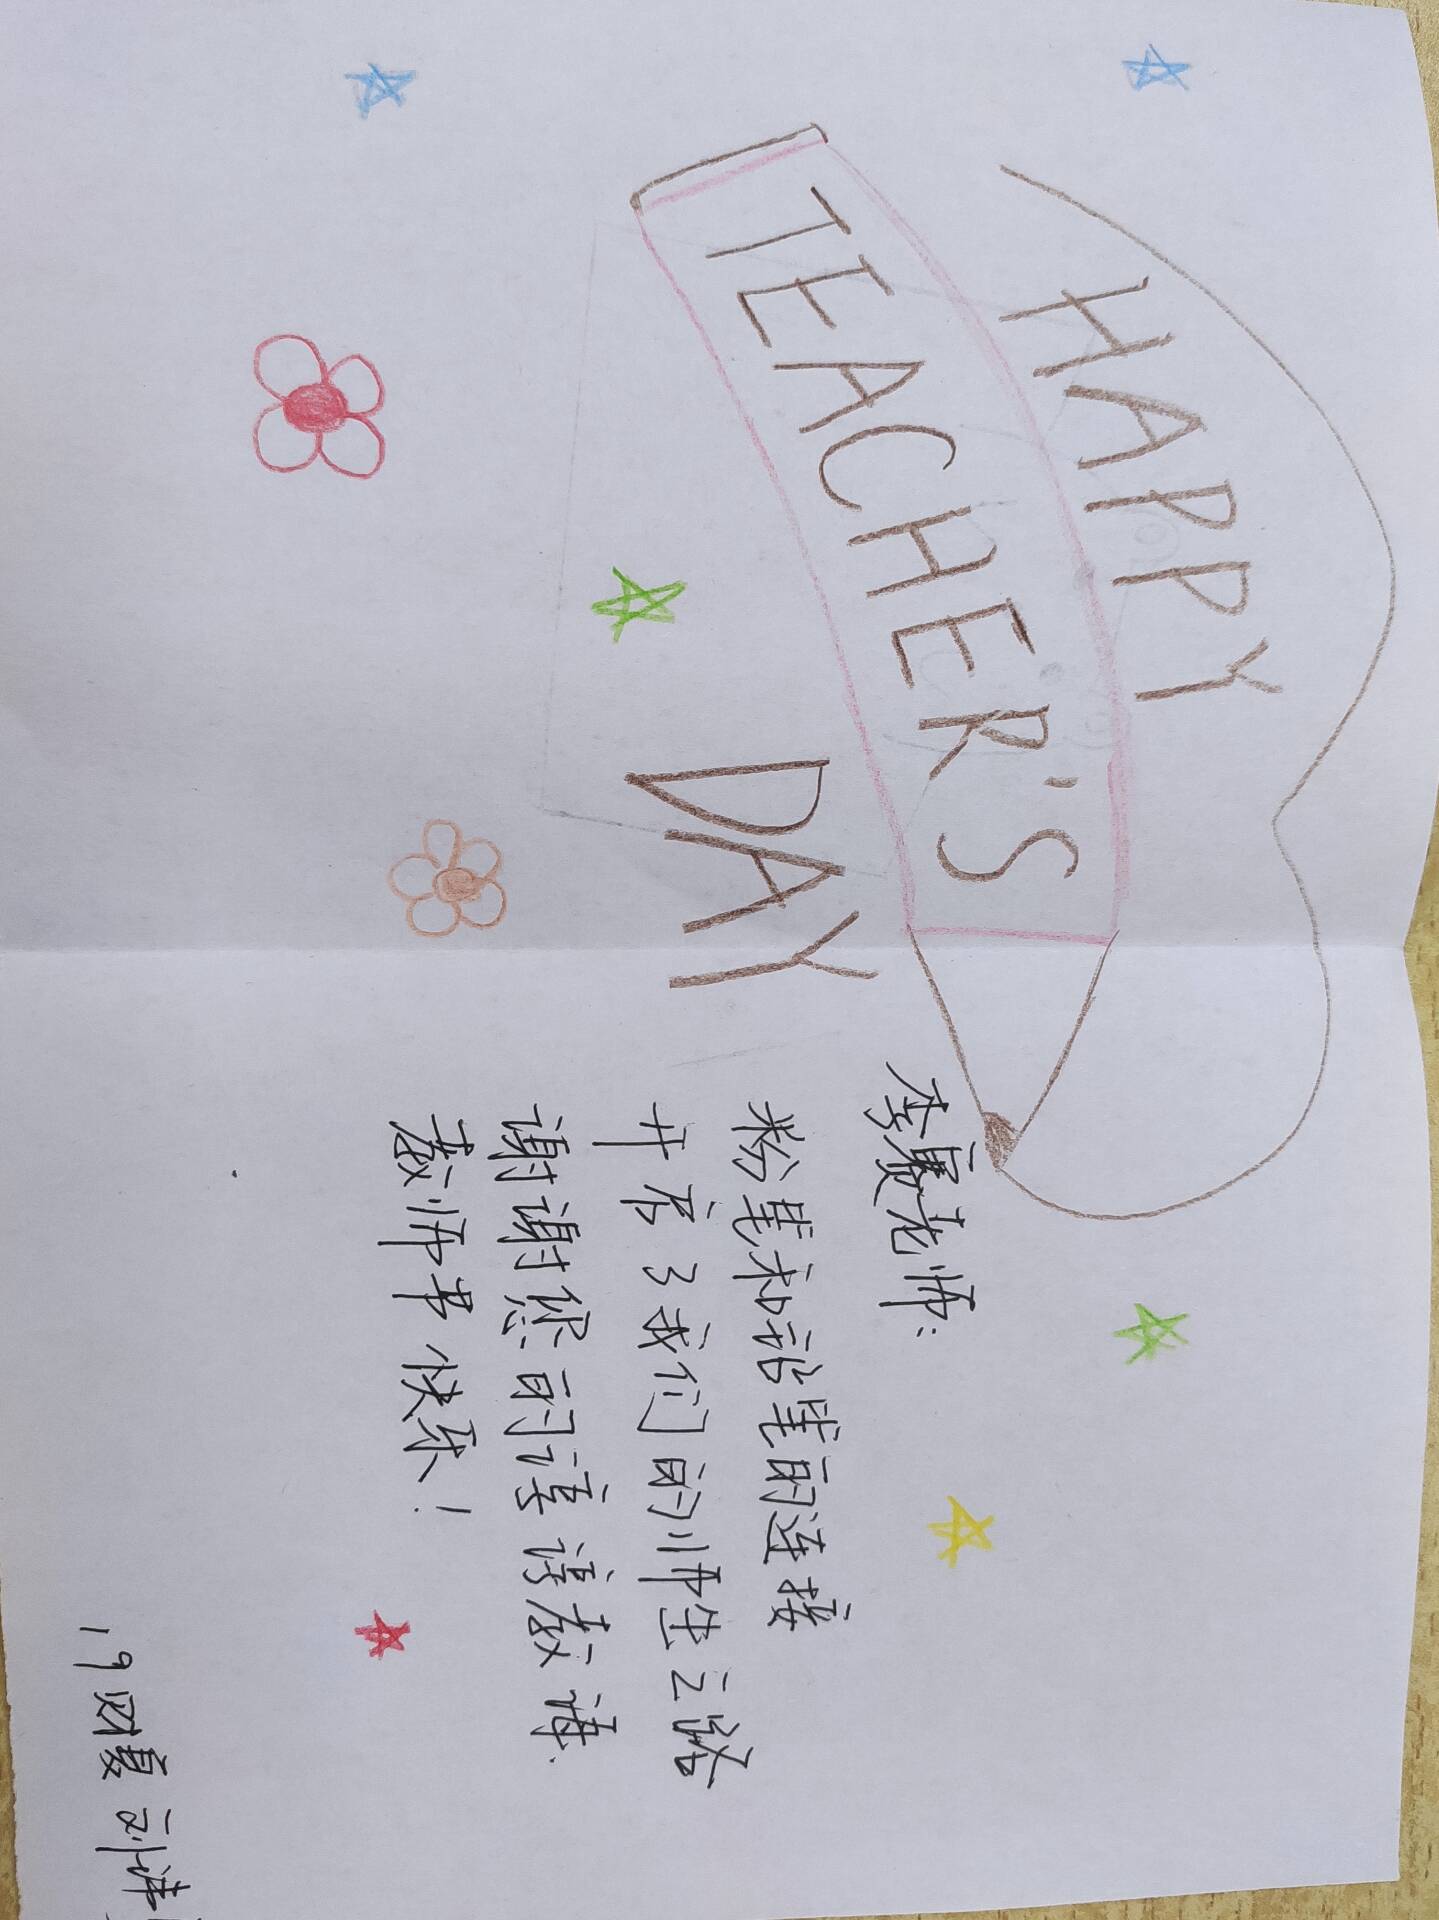 HAPPY
TEACHER'S
DAY
李赛老师:
粉笔和铅笔的连接
开启了我们的师生之路
谢谢您的谆谆教诲.
教师节快乐!
19财夏 刘涛